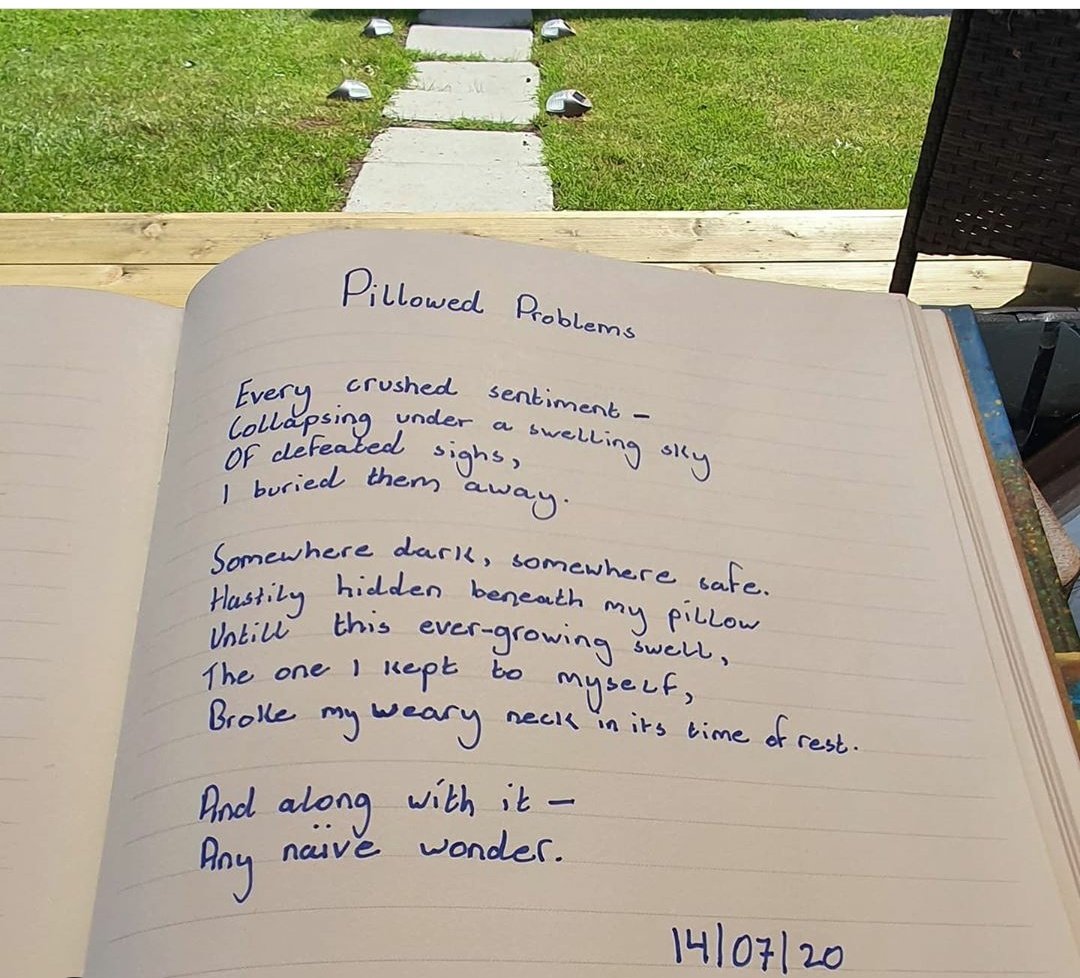 Pillowed Problems
Every crushed sentiment –
Collapsing under a swelling sky
Of defeated sighs,
I buried them away.
Somewhere dark, somewhere safe.
Hastily hidden beneath my pillow
Untill this ever-growing swell,
The one I kept to myself,
Broke my weary neck in its time of rest.
And along with it –
Any naïve wonder.
14/07/20